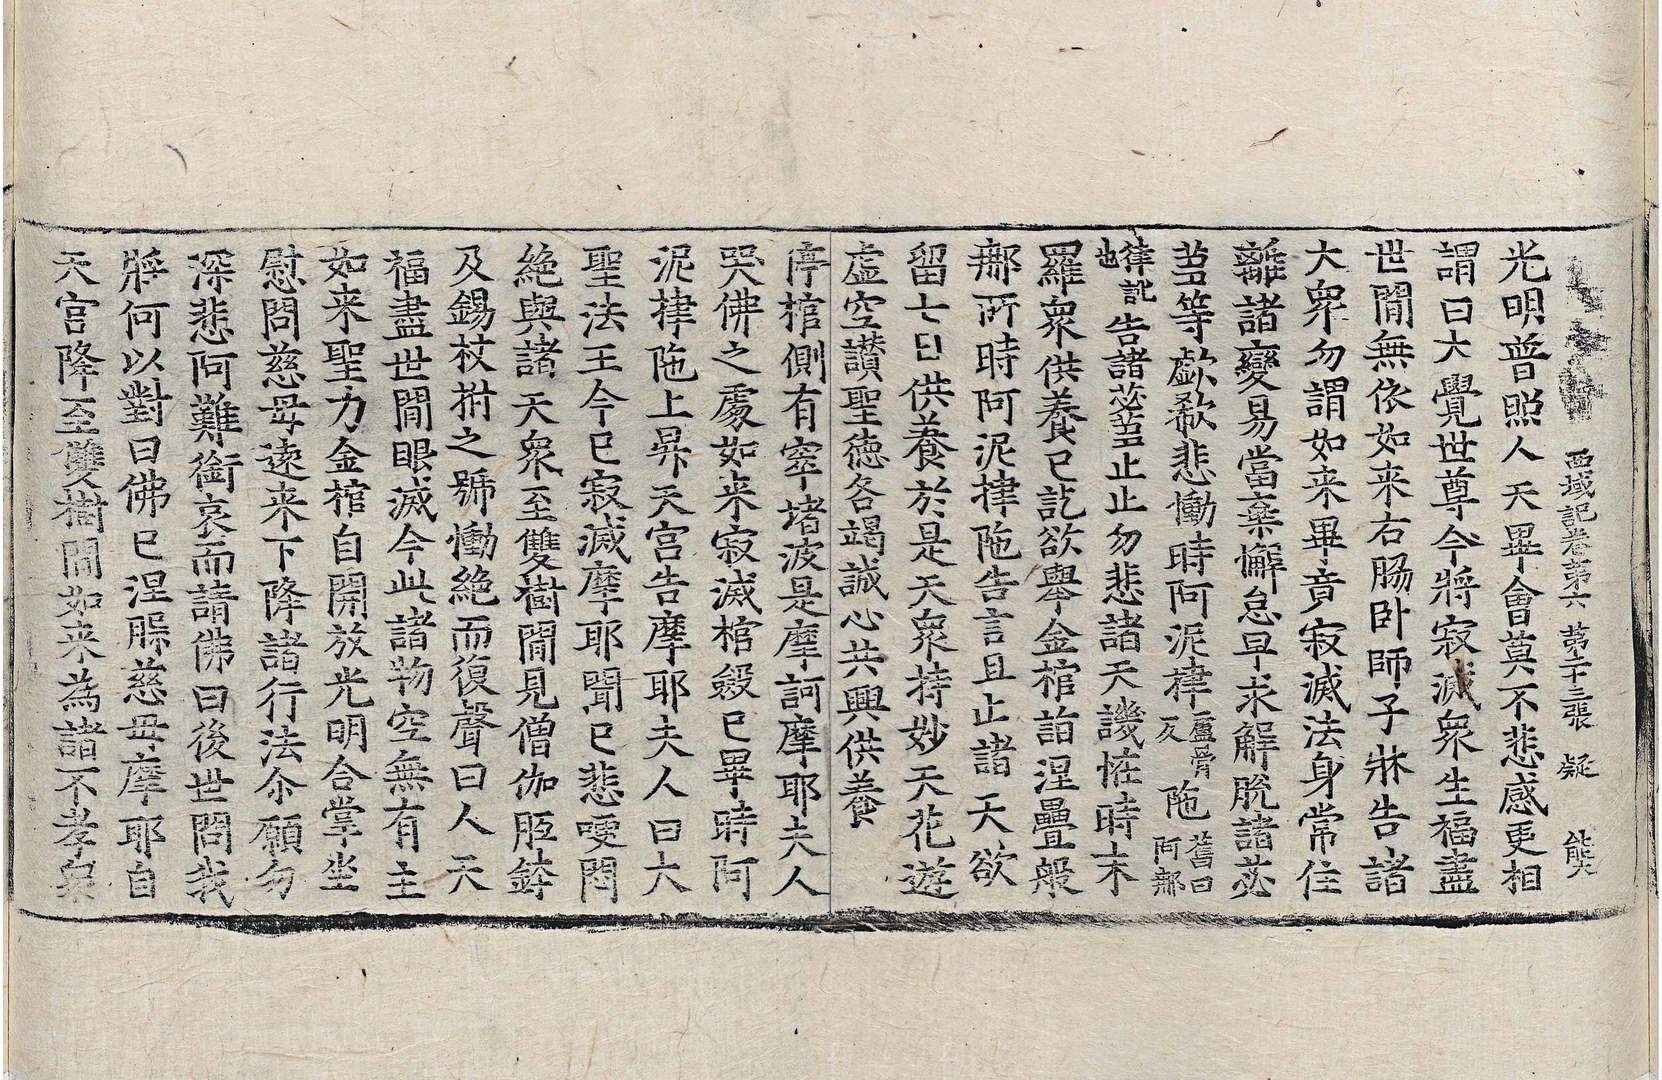 西域記卷第六 第二十三張 疑 能大
光明普照人天畢會莫不悲感更相
謂曰大覺世尊今將寂滅衆生福盡
世間無依如来右脇卧師子牀告諸
大衆勿謂如来畢竟寂滅法身常住
離諸變易當棄懈怠早求解脫諸苾
芻等歔欷悲慟時阿泥𢭏盧骨反陁舊曰阿那
律訛也告諸苾芻止止勿悲諸天譏恠時末
羅衆供養已訖欲舉金棺詣涅疊般
那所時阿泥𢭏陁告言且止諸天欲
留七日供養於是天衆持妙天花遊
虛空讚聖德各竭誠心共興供養
停棺側有窣堵波是摩訶摩耶夫人
哭佛之處如来寂滅棺殮已畢時阿
泥𢭏陁上昇天宮告摩耶夫人曰大
聖法王今已寂滅摩耶聞已悲哽悶
絶與諸天衆至雙樹間見僧伽胝鉢
及錫杖拊之號慟絶而復聲曰人天
福盡世間眼滅今此諸物空無有主
如来聖力金棺自開放光明合掌坐
慰問慈母遠来下降諸行法尒願勿
深悲阿難銜哀而請佛曰後世問我
將何以對曰佛已涅槃慈母摩耶自
天宮降至雙樹間如来為諸不孝衆